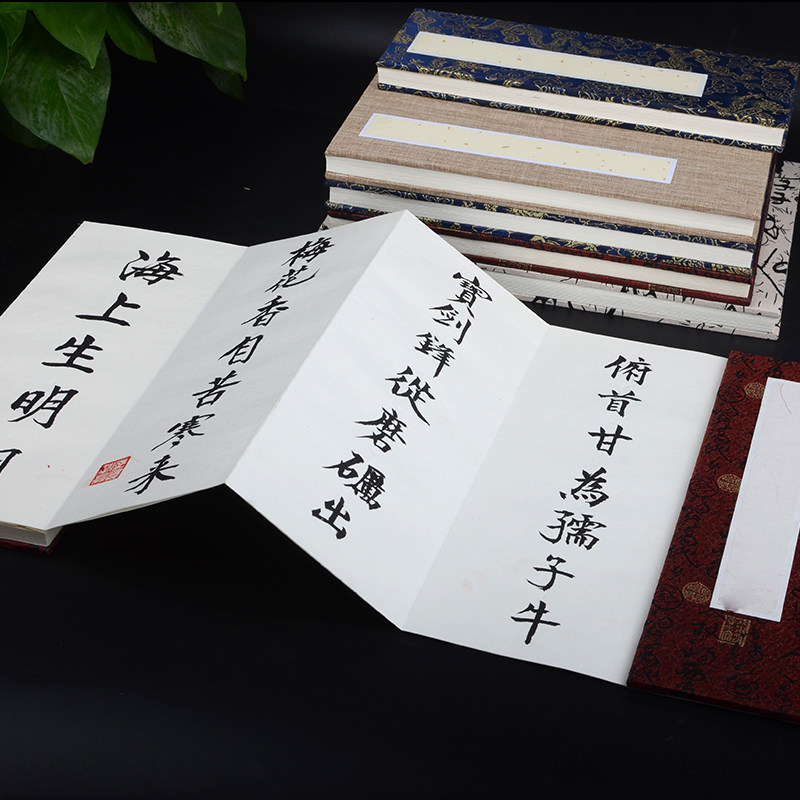 俯首甘為孺子牛
寶劍鋒從磨礪出
梅花香自苦寒来
海上生明月